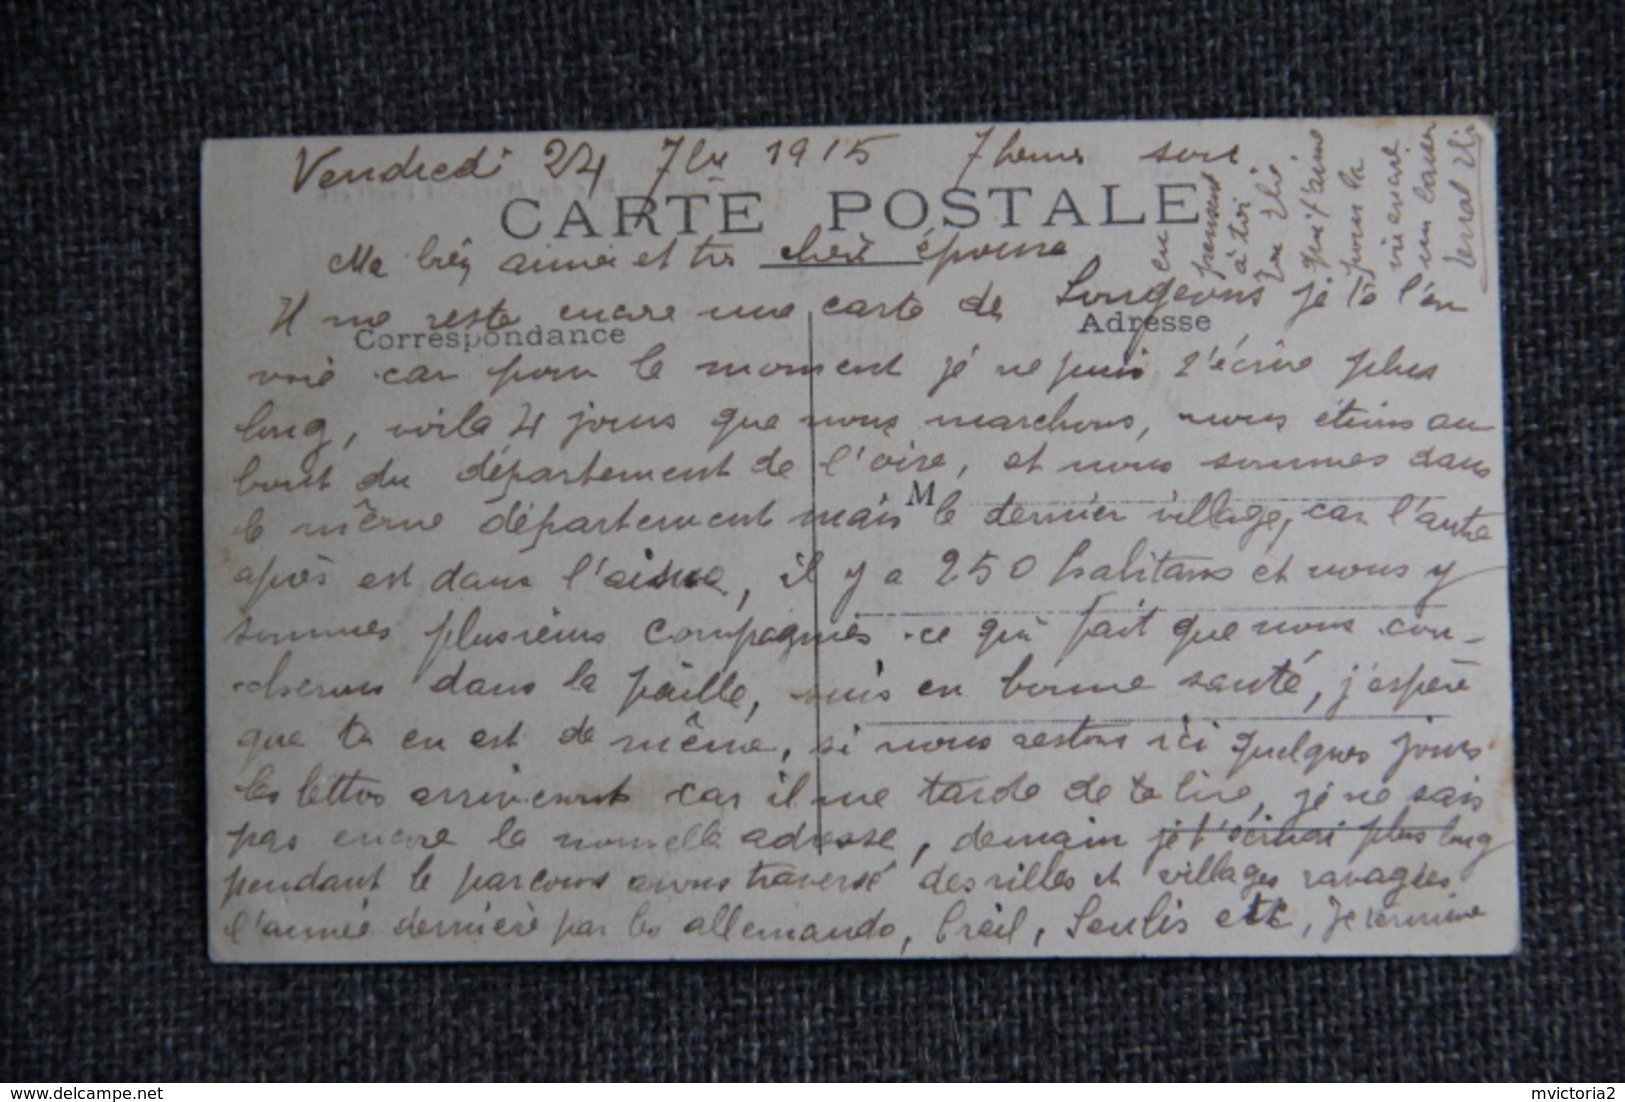 Vendredi 24 7bre 1915 7 heures soir
CARTE POSTALE
Ma bien aimée et très chère épouse
Il me reste encore une carte de Songeons je te l'en
Correspondance
Adresse
voie car pour le moment je ne puis t'écrire plus
long, voila 4 jours que nous marchons, nous étions au
bout du département de l'oise, et nous sommes dans
M
le même département mais le dernier village, car l'autre
après est dans l'aisne, il y a 250 habitans et nous y
sommes plusieurs compagnies ce qui fait que nous cou-
cherons dans la paille, suis en bonne santé, j'espère
que tu en est de même, si nous restons ici quelques jours
les lettres arriveront car il me tarde de te lire, je ne sais
pas encore la nouvelle adresse, demain je t'écrirai plus long
pendant le parcours avons traversé des villes et villages ravagées
l'année dernière par les allemands, Creil, Senlis etc, je termine
en
pensant
à toi
ton
qui t'aime
pour la
vie envoie
un baiser
mvictoria2